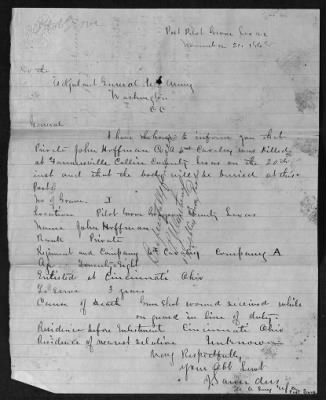 Post Pilot Grove Texas
November 21. 186
To the
Adjutant General U.S. Army
Washington
D C
General
I have the honor to inform you that
Private John Hoffman Co A 6th Cavalry was Killed
at Farmersville Collin County Texas on the 20th
inst and that the body will be buried at this
Post
No of Grave 1
Location Pilot Grove Grayson County Texas
Name John Hoffman
Rank Private
Regiment and Company 6th Cavalry Company A
Age Twenty Eight
Enlisted at Cincinnati Ohio
To Serve 3 years
Cause of Death Gun Shot wound received while
on guard in line of duty.
Residence before Enlistment Cincinnati Ohio
Residence of nearest relative Unknown
Very Respectfully
Your Obt Svt